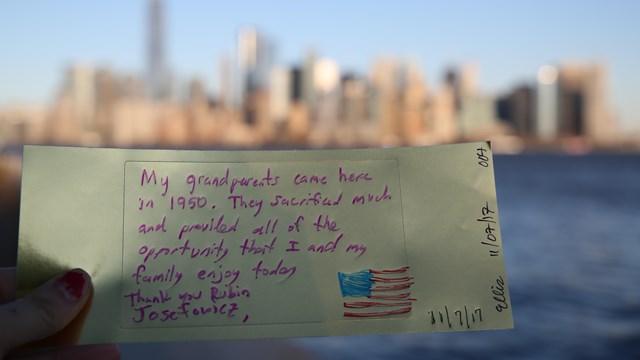 My grandparents came here
in 1950. They sacrificed much
and provided all of the
opportunity that I and my
family enjoy today
Thank you Rubin
Josefowicz,
11/7/17
Ellis
11/07/17
004